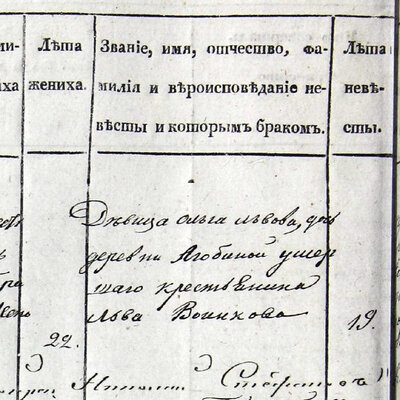 ми-
ніха
Лѣта
жениха.
Званіе, имя, отчество, фа-
милія и вѣроисповѣданіе не-
вѣсты и которымъ бракомъ.
Лѣта
невѣ-
сты.
Дѣвица Ольга Львова, дочь
деревни Агобиной умер
шаго крестьянина
Льва Воинкова
22.
19.